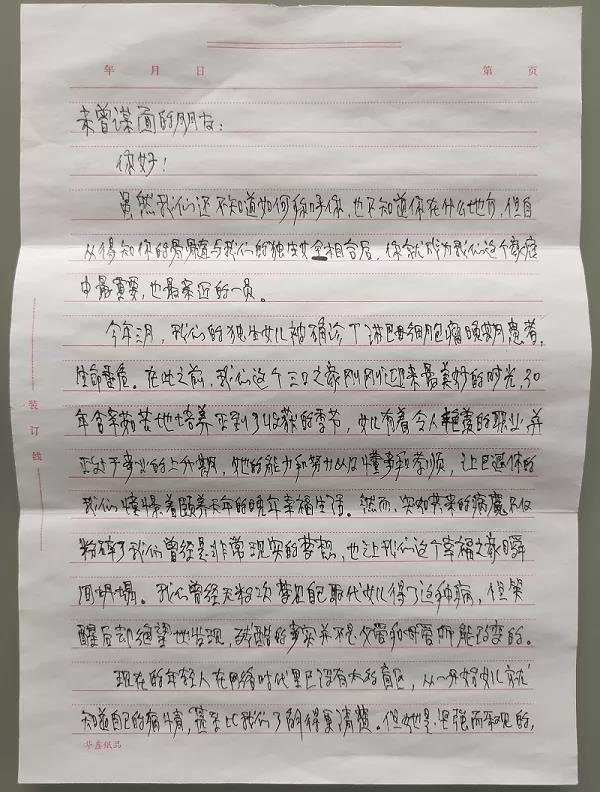 年 月 日 第 页
未曾谋面的朋友：
你好！
虽然我们还不知道如何称呼你，也不知道你在什么地方，但自
从得知你的骨髓与我们的独生女全相合后，你就成为我们这个家庭
中最重要，也最亲近的一员。
今年三月，我们的独生女儿被确诊了淋巴母细胞瘤晚期患者，
生命垂危。在此之前，我们这个三口之家刚刚迎来最美好的时光，30
年含辛茹苦地培养正到了收获的季节，女儿有着令人艳羡的职业，并
正处于事业的上升期，她的能力和努力以及懂事和孝顺，让已退休的
我们憧憬着颐养天年的晚年幸福生活。然而，突如其来的病魔不仅
粉碎了我们曾经是非常现实的梦想，也让我们这个幸福之家瞬
间坍塌。我们曾经无数次梦见自己取代女儿得了这种病，但笑
醒后却绝望地发现，残酷的事实并不是父爱和母爱所能改变的。
现在的年轻人在网络时代里已没有太的盲区，从一开始女儿就
知道自己的病情，甚至比我们了解得更清楚。但她是坚强而乐观的，
装订线
华鑫纸品